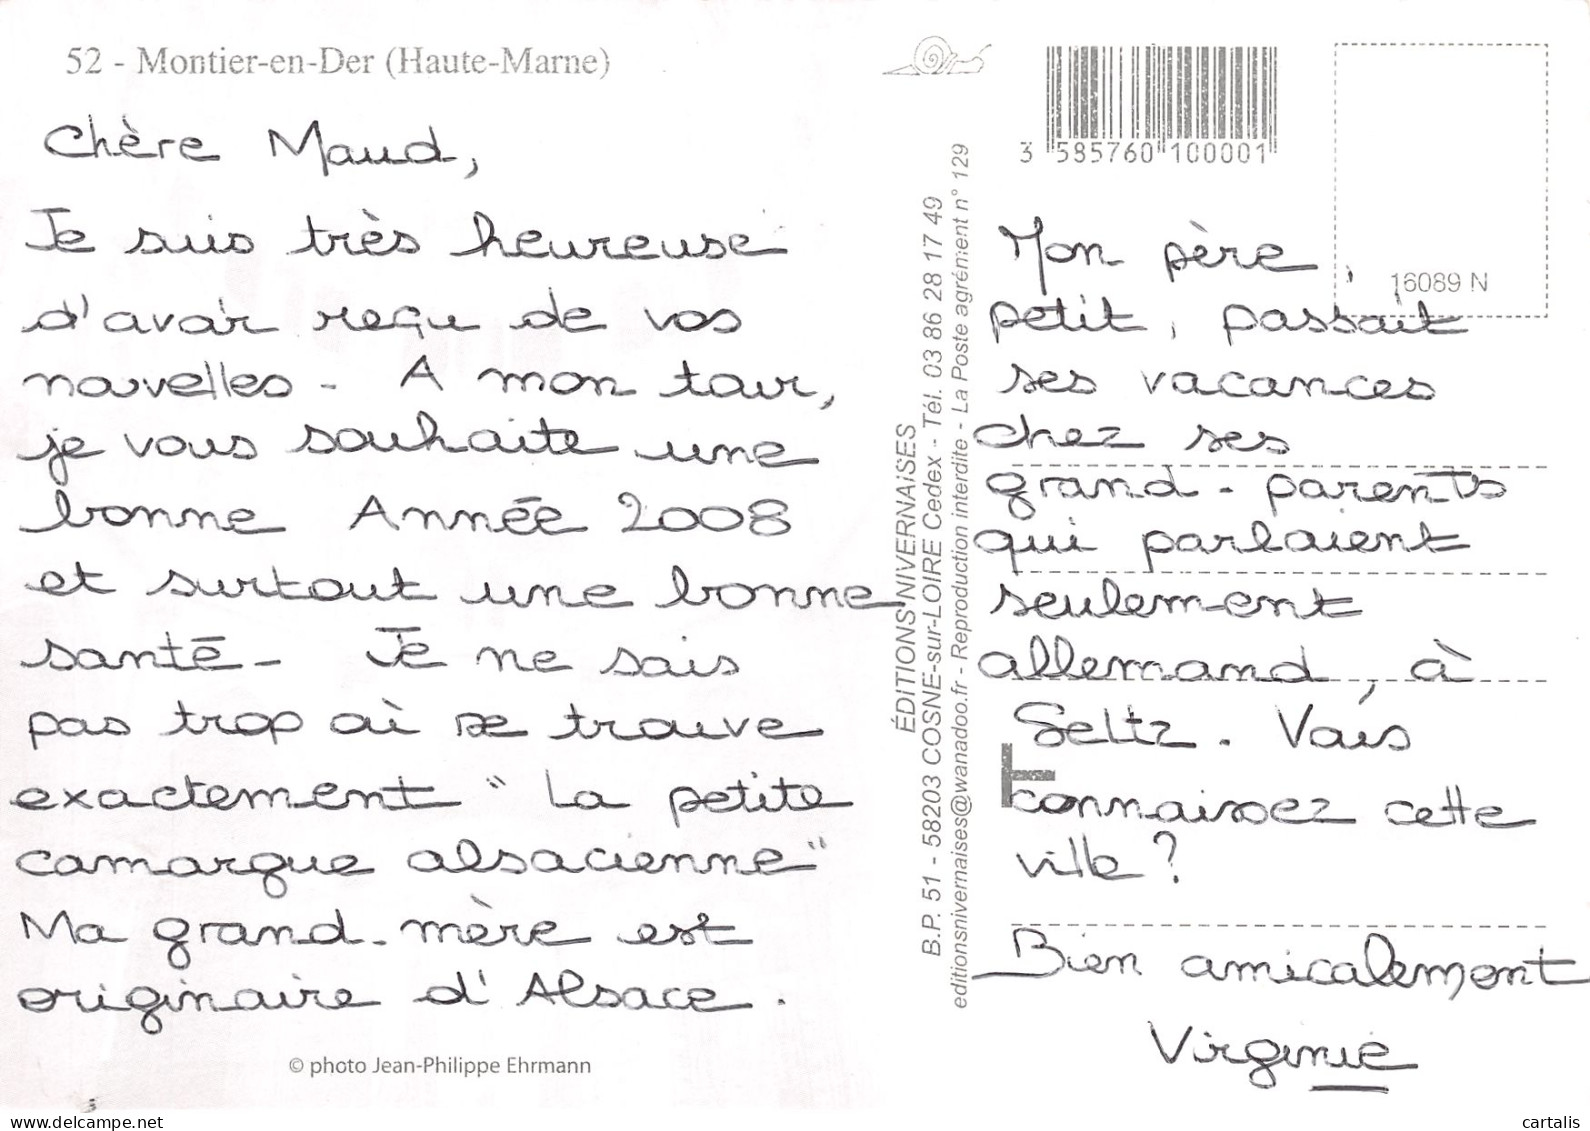 52 - Montier-en-Der (Haute-Marne)
Chère Maud,
Je suis très heureuse
d'avoir reçu de vos
nouvelles - A mon tour,
je vous souhaite une
bonne Année 2008
et surtout une bonne
santé - Je ne sais
pas trop où se trouve
exactement "La petite
camargue alsacienne"
Ma grand-mère est
originaire d'Alsace.
© photo Jean-Philippe Ehrmann
ÉDITIONS NIVERNAISES
B.P. 51 - 58203 COSNE-sur-LOIRE Cedex - Tél. 03 86 28 17 49
editionsnivernaises@wanadoo.fr - Reproduction interdite - La Poste agrément n° 129
3 585760 100001
16089 N
Mon père,
petit, passait
ses vacances
chez ses
grand-parents
qui parlaient
seulement
allemand, à
Seltz. Vous
connaissez cette
ville ?
Bien amicalement
Virginie
cartalis